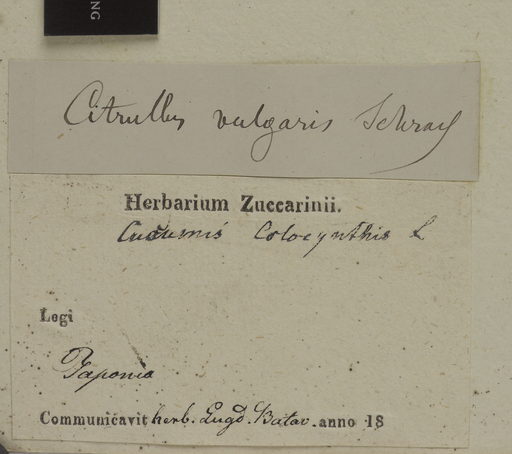 NG
Citrullus vulgaris Schrad
Herbarium Zuccarinii.
Cucumis Colocynthis L
Legi
Japonia
Communicavit herb. Lugd. Batav. anno 18